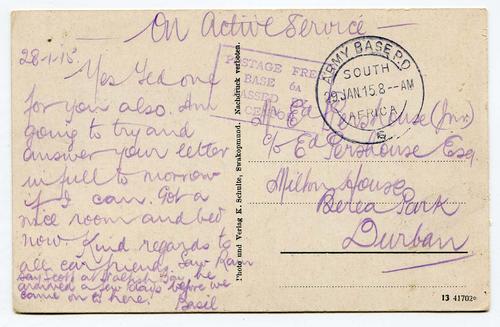 - On Active Service -
28-1-15
Yes Ted one
for you also. Am
going to try and
answer your letter
in full to morrow
if I can. Got a
nice room and bed
now. Kind regards to
all our friends. Saw
Say Scott at Walfish Bay he
arrived a few days before we
came on to here. Basil
POSTAGE FREE
BASE 6A
PASSED
CENSOR
ARMY BASE P.O.
SOUTH
29 JAN 15. 8--AM
AFRICA
6
Photo und Verlag K. Schulte, Swakopmund. Nachdruck verboten.
Ed Pershouse (Jnr)
c/o Ed Pershouse Esq.
Milton House
Berea Park
Durban
13 41702